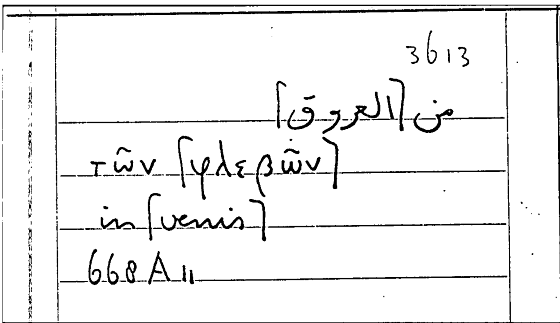 3613
من [العروق]
τῶν [φλεβῶν]
in [venis]
668 A 11